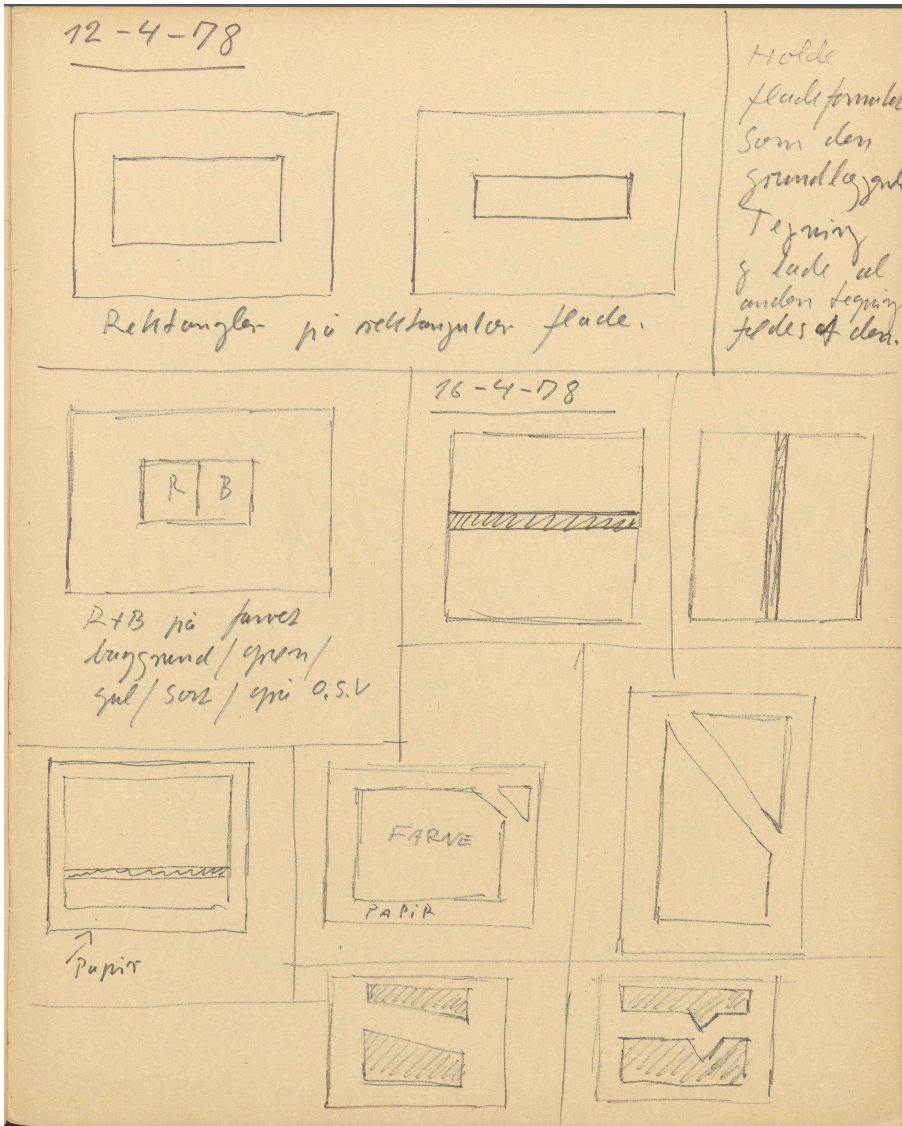 12-4-78
Rektangler på rektangulær flade.
Holde
fladeformatet
som den
grundlæggende
Tegning
& lade al
anden tegning
fældes af den.
R B
R+B på farvet
baggrund/grøn/
gul/sort/grå O.S.V
16-4-78
Papir
FARVE
PAPIR